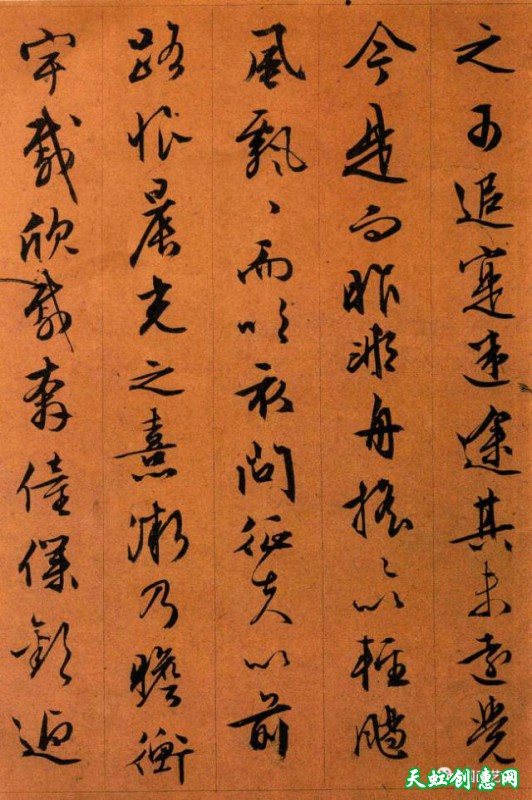 之可追寔迷途其未遠覺
今是而昨非舟搖〻以輕颺
風飄〻而吹衣問征夫以前
路恨晨光之熹微乃瞻衡
宇載欣載奔僮僕歡迎
天虹创惠网